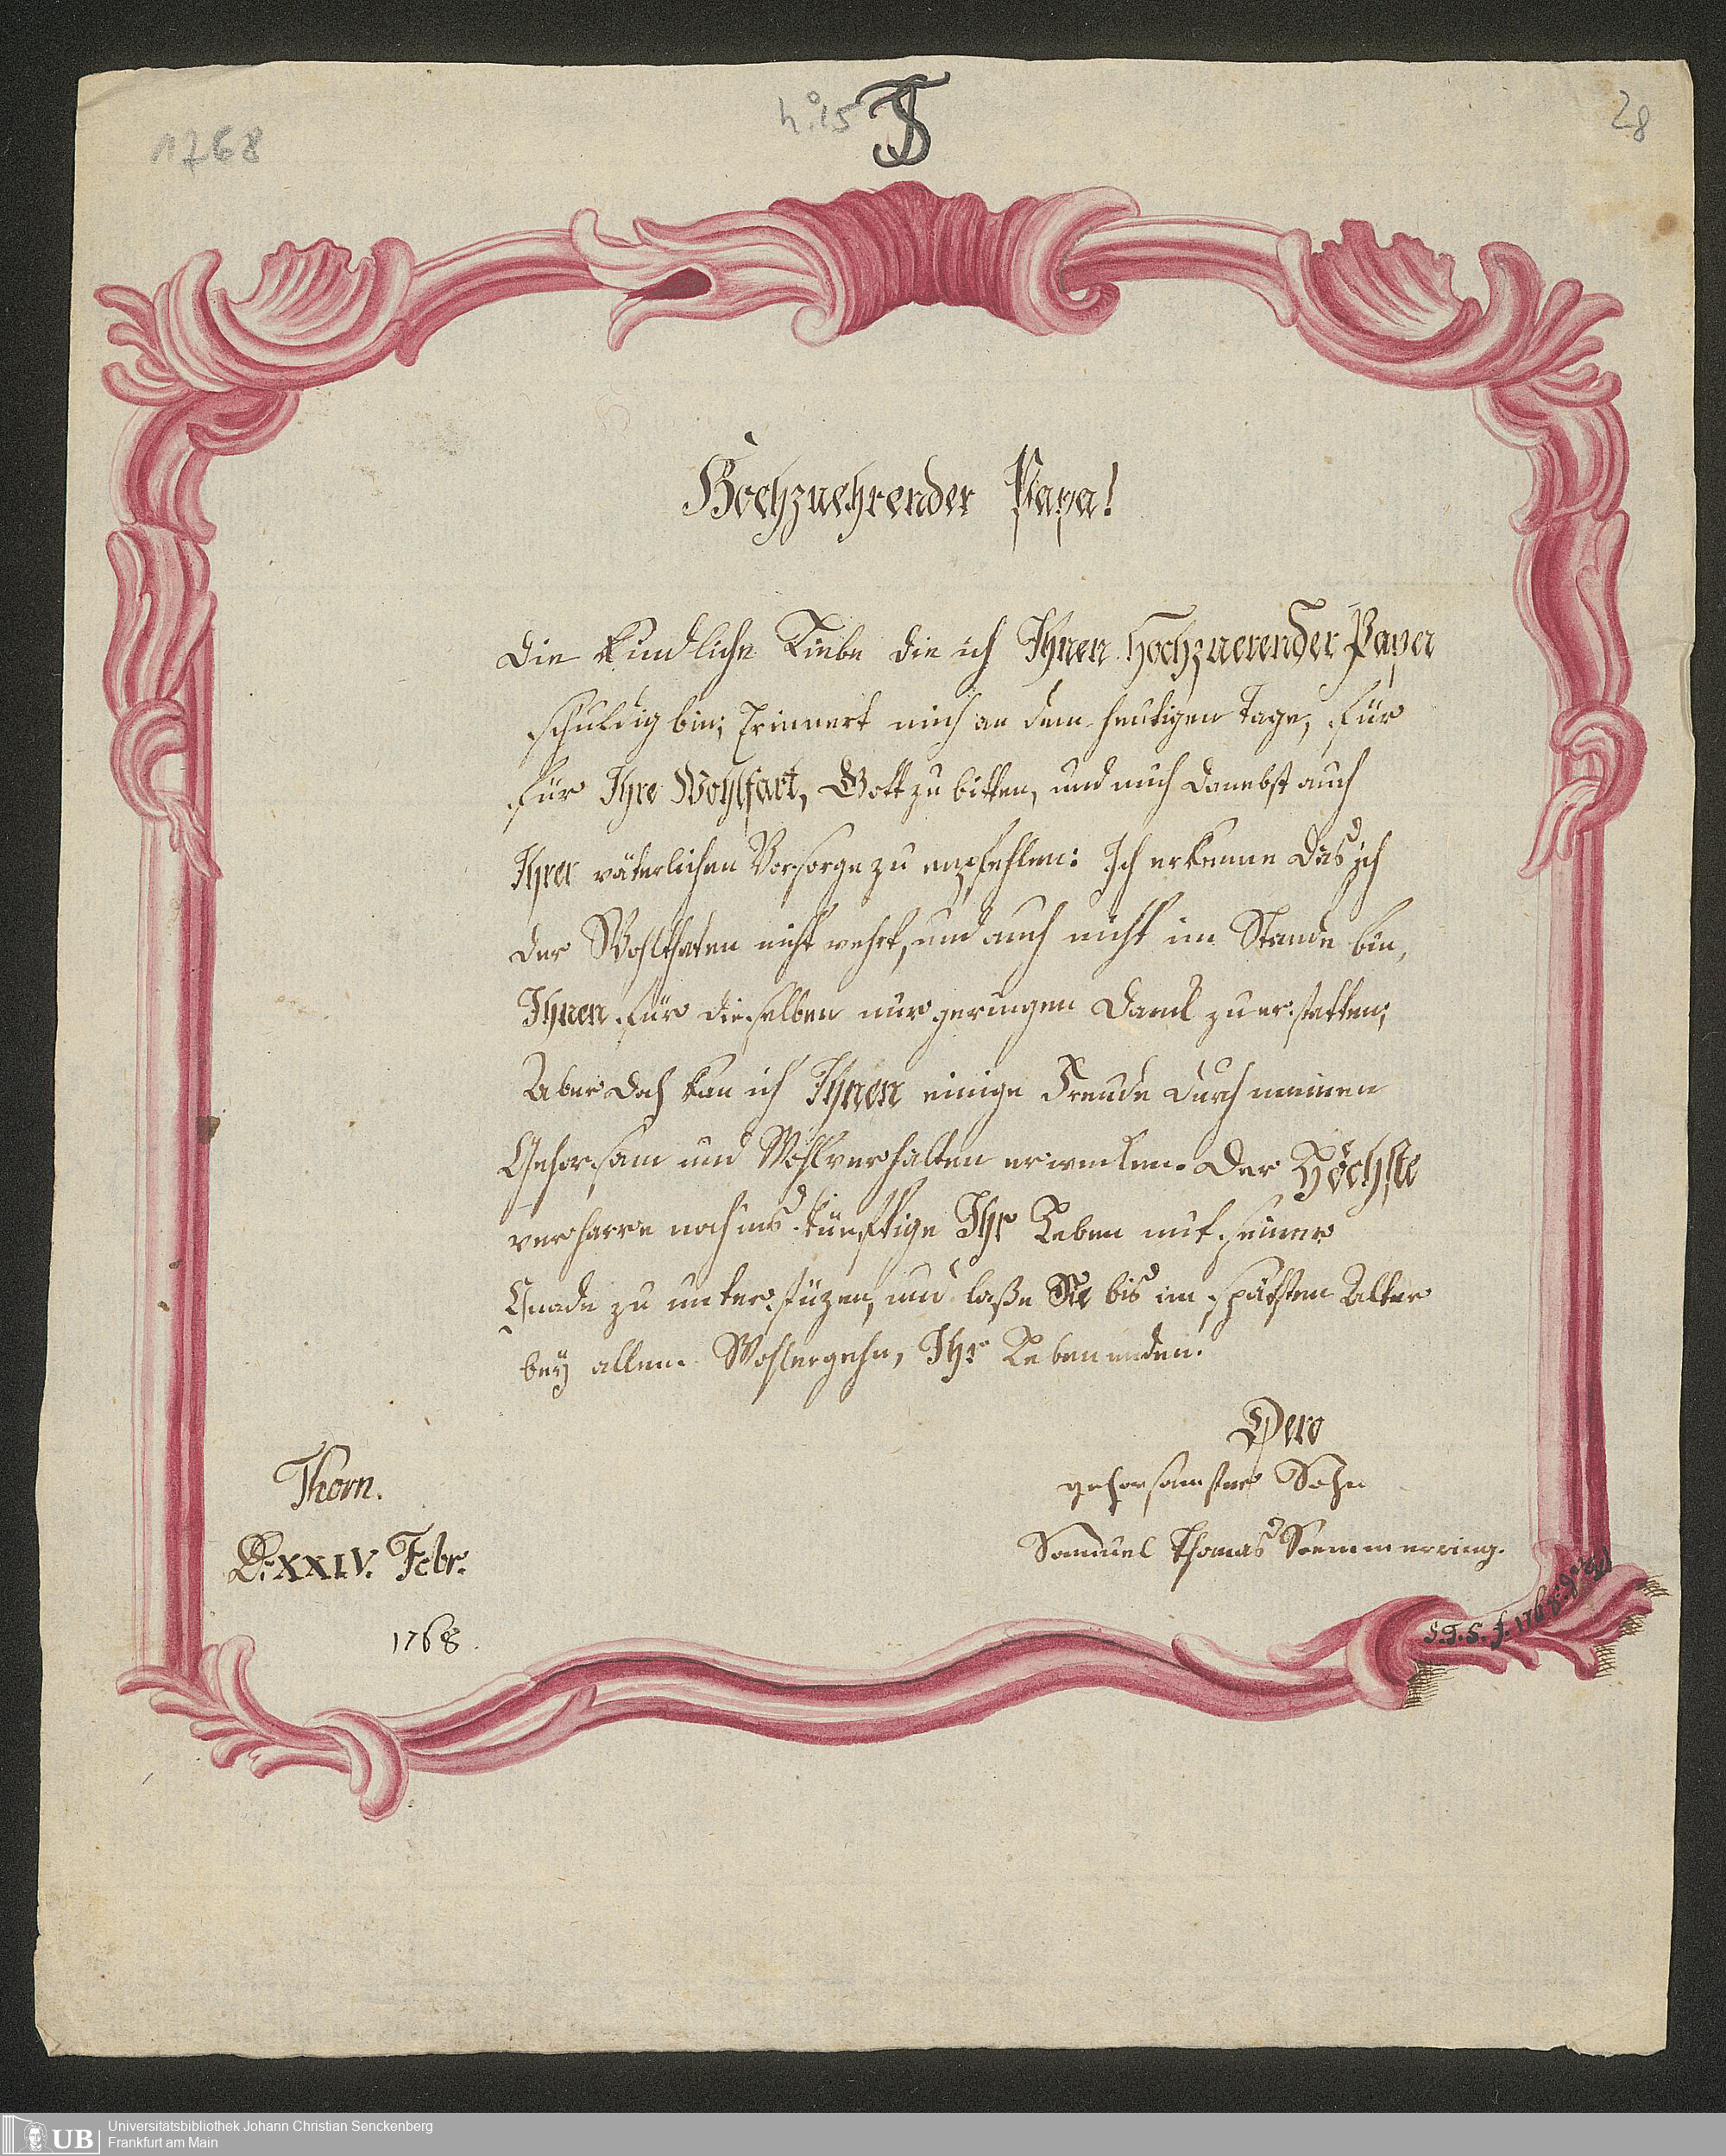 1768
28
Hochzuehrender Papa!
Die kindliche Liebe die ich Ihnen Hochzuerender Papa
schuldig bin; Erinnert mich an dem heutigen Tage, für
für Ihre Wohlfart, Gott zu bitten, und mich danebst auch
Ihrer väterlichen Vorsorge zu empfehlen: Ich erkenne das ich
der Wohlthaten nicht wehrt, und auch nicht im Stande bin,
Ihnen für dieselben nur geringen Dank zu erstatten;
Aber doch kan ich Ihnen einige Freude durch meinen
Gehorsam und Wohlverhalten erwecken. Der Höchste
verharre noch ins künftige Ihr Leben mit seiner
Gnade zu unterstüzen, und laße Sie bis im spätsten Alter
bey allem Wohlergehn, Ihr Leben enden.
Dero
gehorsamster Sohn
Samuel Thomas Soemmerring.
Thorn.
D. XXIV. Febr.
1768.
S.T.S. f. 1768
UB
Universitätsbibliothek Johann Christian Senckenberg
Frankfurt am Main